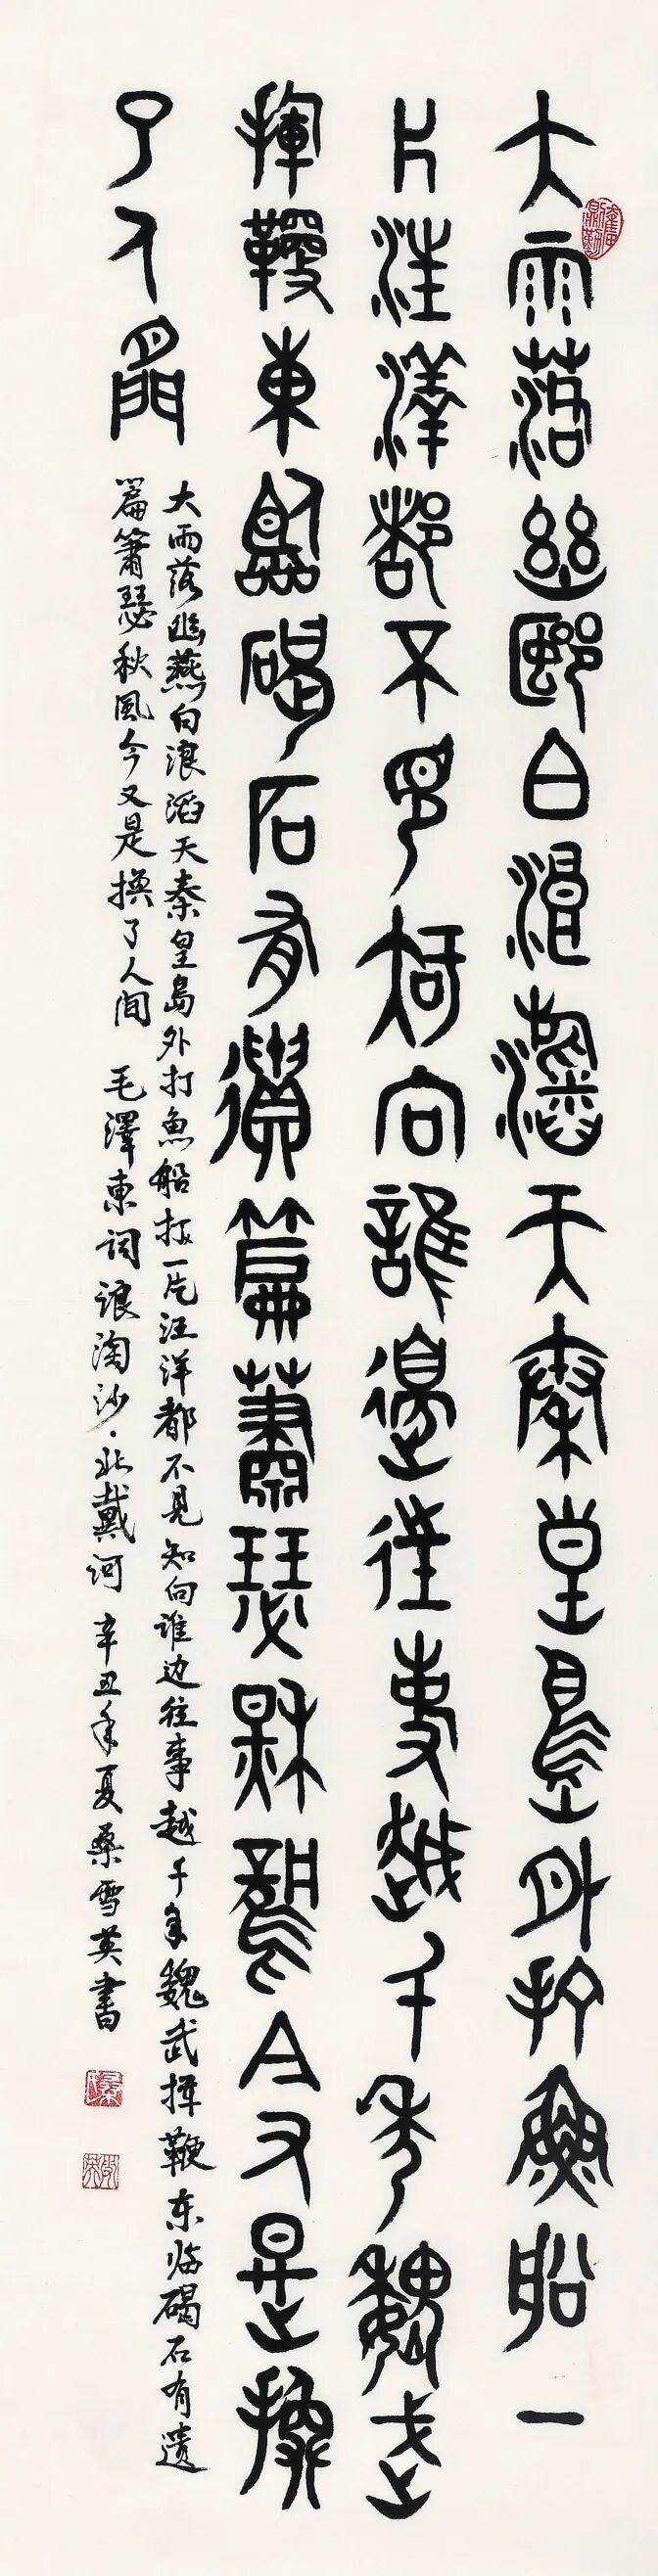 大雨落幽燕白浪滔天秦皇島外打魚船一
片汪洋都不見知向誰邊往事越千年魏武
揮鞭東臨碣石有遺篇蕭瑟秋風今又是換
了人間
大雨落幽燕白浪滔天秦皇島外打魚船一片汪洋都不見知向谁边往事越千年魏武揮鞭东临碣石有遺
篇簫瑟秋風今又是換了人间 毛澤東詞浪淘沙·北戴河 辛丑年夏桑雪英書